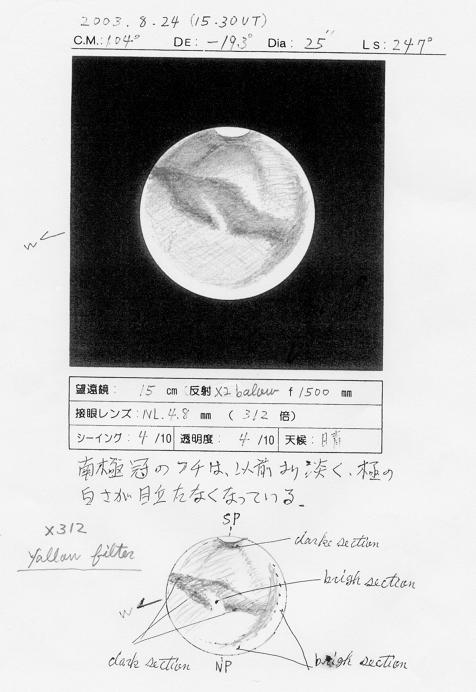 2003.8.24 (15.30UT)
C.M.: 104° DE: -19.3° Dia: 25" Ls: 247°
W
望遠鏡: 15 cm 反射 X2 balow f 1500 mm
接眼レンズ: NL.4.8 mm (312 倍)
シーイング: 4 /10 透明度: 4 /10 天候: 晴
南極冠のフチは、以前より淡く、極の
白さが目立たなくなっている。
X312
Yallow filter
SP
darks section
brigh section
W
dark section
NP
brigh section